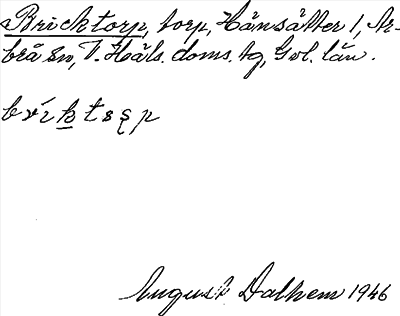 Bricktorp, torp, Hånsätter 1, Ar-
brå sn, V. Häls. doms. tg, Gvl. län.
bvíktsşp
August Dalhem 1946